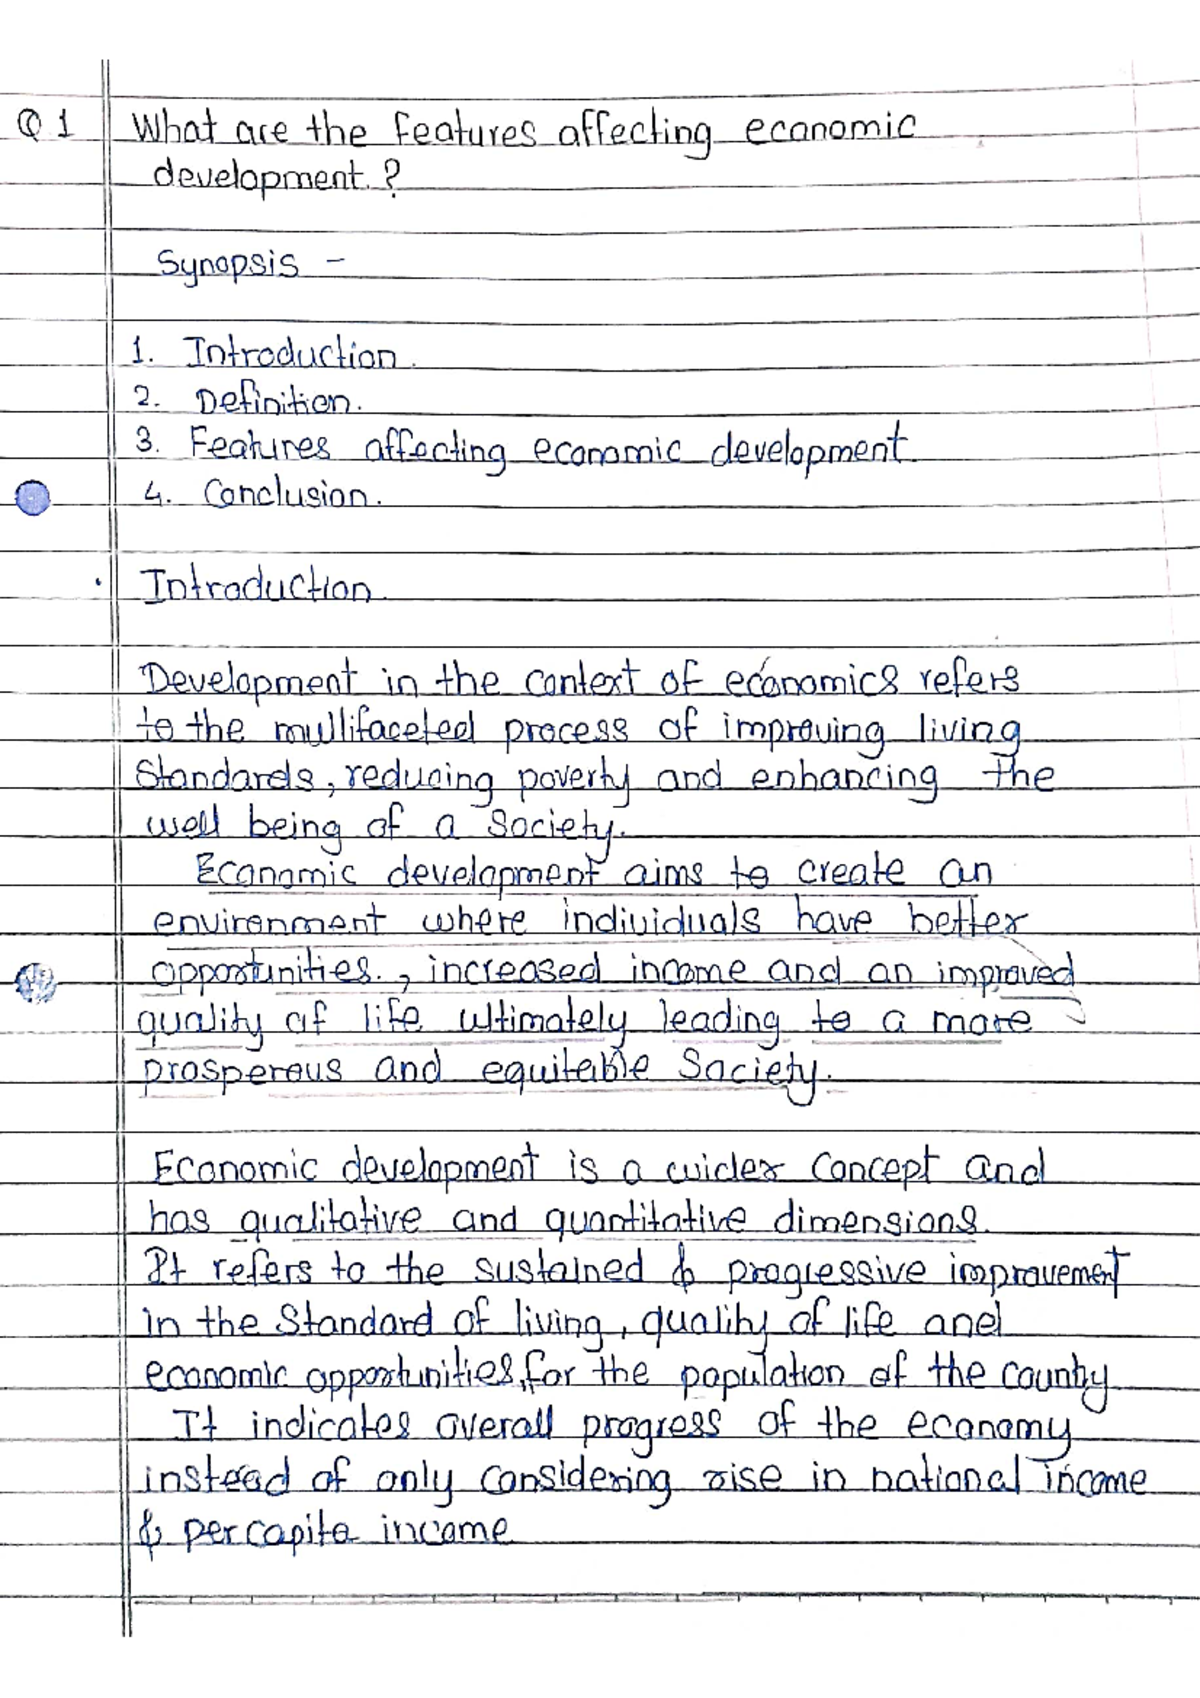 Q 1 What are the features affecting economic
development.?
Synopsis -
1. Introduction.
2. Definition.
3. Features affecting economic development
4. Conclusion.
. Introduction
Development in the context of economics refers
to the multifaceted process of improving living
standards, reducing poverty and enhancing the
well being of a society.
Economic development aims to create an
environment where individuals have better
opportunities., increased income and an improved
quality of life ultimately leading to a more
prosperous and equitable society.
Economic development is a wider concept and
has qualitative and quantitative dimensions.
It refers to the sustained & progressive improvement
in the standard of living, quality of life and
economic opportunities, for the population of the country
It indicates overall progress of the economy
instead of only considering rise in national income
& per capita income